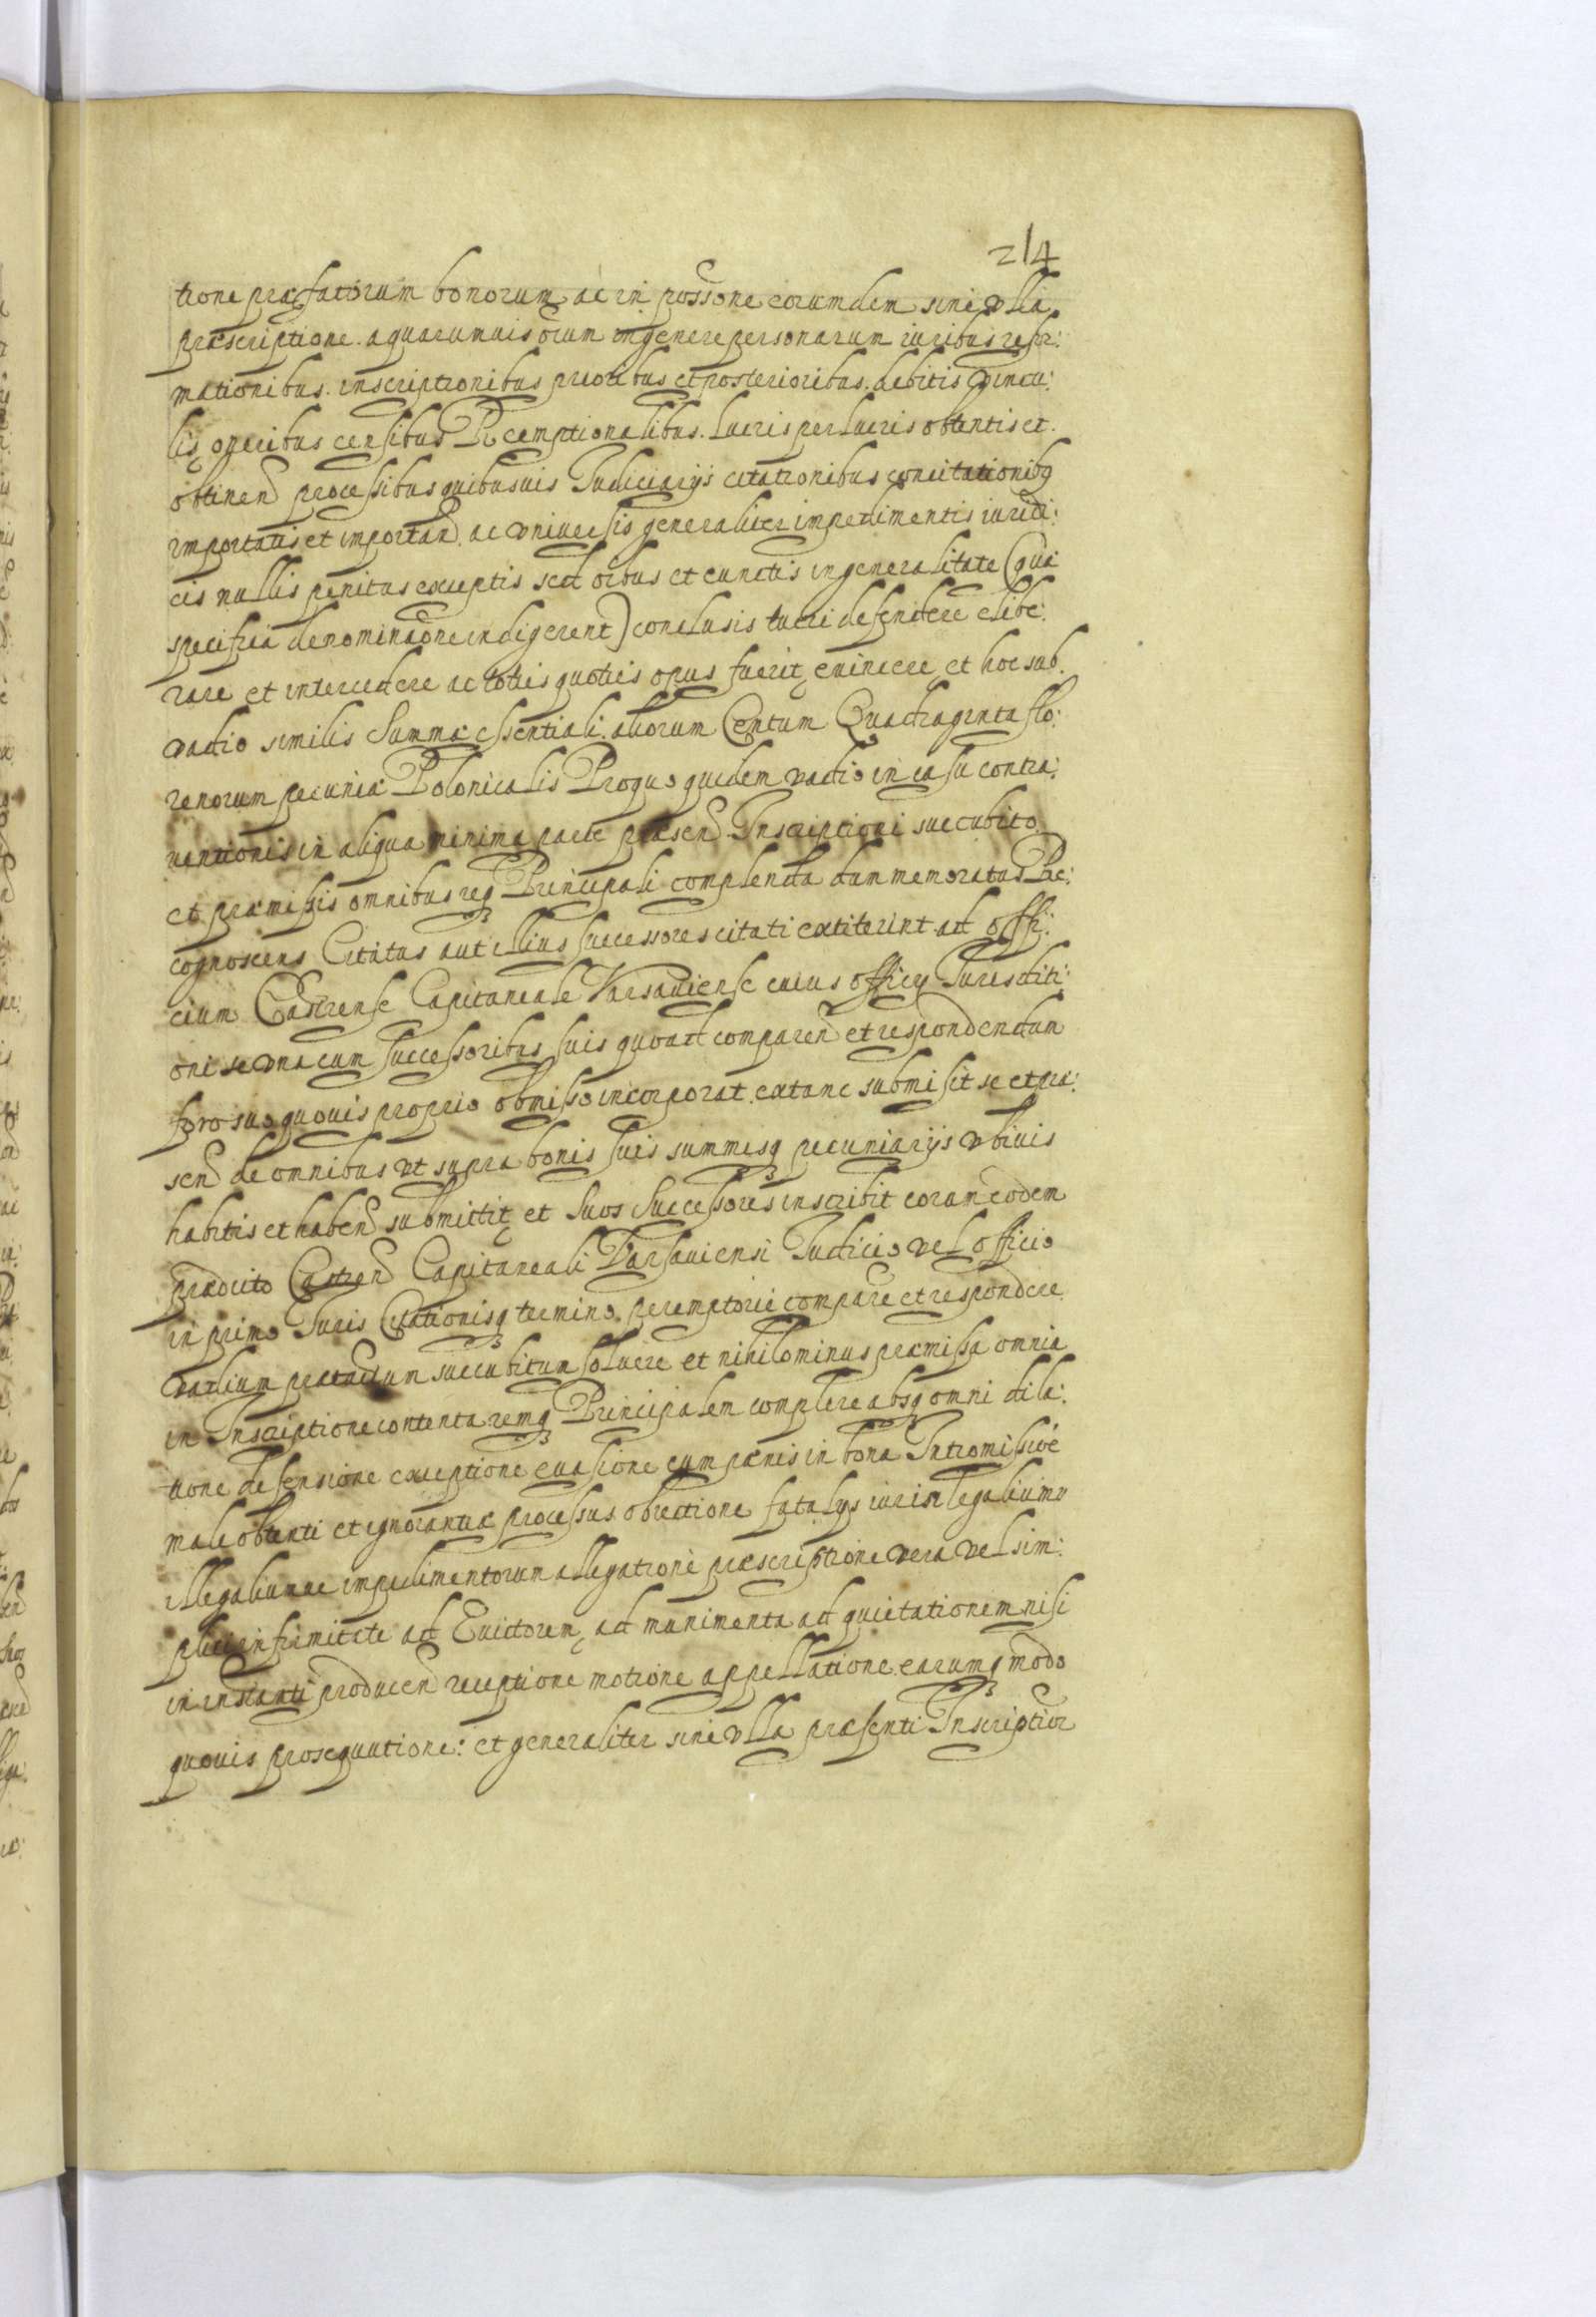 214
tione præfatorum bonorum ac in possone eorumdem sine vlla
præscriptione. a quarumuis oium in genere personarum iuribus refor:
mationibus. inscriptionibus prioribus et posterioribus. debitis vincu:
lis oneribus censibus Reemptionalibus. Lucris perlucris obtentis et.
obtinend processibus quibusuis Iudiciarijs citationibus concitationibq
importatis et importand. ac vniuersis generaliter impedimentis iuridi:
cis nullis penitus exceptis sed oibus et cunctis in generalitate (quæ
specifica denominaone indigerent) conclusis tueri defendere elibe:
rare et intercedere ac toties quoties opus fuerit euincere et hoc sub.
vadio similis Summæ essentiali. aliorum Centum Quadraginta flo:
renorum pecuniæ Polonicalis Proquo quidem vadio in casu contra:
uentionis in aliqua minima parte præsend. Inscriptioni succubito
et præmissis omnibus req Principali complenda dum memoratus Re:
cognoscens Citatus aut illius successores citati extiterint ad offi:
cium Castrense Capitaneale Varsauiense cuius officij Iurisditi:
oni se vna cum successoribus suis quoad comparend et respondendum
foro suo quouis proprio obmisso incorporat. extunc submisit se et præ:
send de omnibus vt supra bonis suis summisq pecuniarijs vbiuis
habitis et habend submittit et suos Successores inscribit coram eodem
prædicto Castrend Capitaneali Varsauiensi Iudicio vel officio
in primo Iuris Citationisq termino. peremptorie compare et respondere
vadium prætactum succubitum soluere et nihilominus præmissa omnia
in Inscriptione contenta remq Principalem complere absq omni dila:
tione defensione exceptione euasione cum pænis in bona Intromissioē
male obtenti et ignorantiæ processus obiectione fatalijs iuris legaliumv
illegaliumue impedimentorum allegatione præscriptione vera vel sim:
plici infirmitate ad Euictorem ad munimenta ad quietationem nisi
in instanti producend receptione motione appellatione. earumq modo
quouis prosequutione: et generaliter sine vlla præsenti Inscriptior